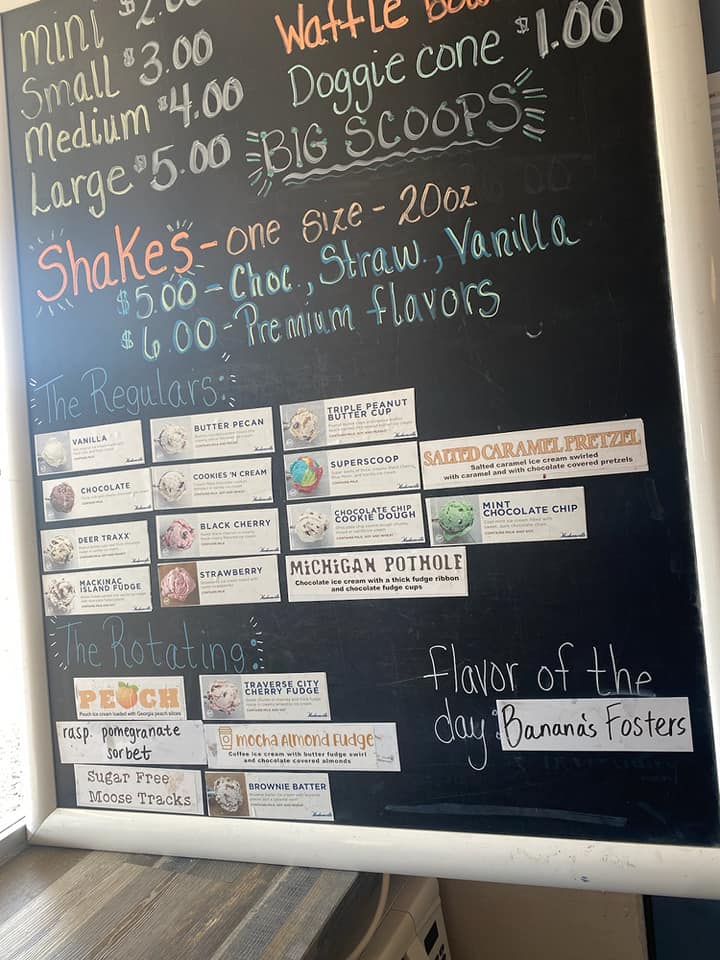 mini $2.00
Small $3.00
Medium $4.00
Large $5.00
Waffle
Doggie cone $1.00
BIG SCOOPS
Shakes - one size - 20oz
$5.00 - Choc., Straw., Vanilla
$6.00 - Premium flavors
The Regulars:
VANILLA
CHOCOLATE
DEER TRAXX
MACKINAC
ISLAND FUDGE
BUTTER PECAN
COOKIES 'N CREAM
BLACK CHERRY
STRAWBERRY
TRIPLE PEANUT
BUTTER CUP
SUPERSCOOP
CHOCOLATE CHIP
COOKIE DOUGH
MICHIGAN POTHOLE
Chocolate ice cream with a thick fudge ribbon
and chocolate fudge cups
SALTED CARAMEL PRETZEL
Salted caramel ice cream swirled
with caramel and with chocolate covered pretzels
MINT
CHOCOLATE CHIP
The Rotating:
PEACH
Peach ice cream loaded with Georgia peach slices
rasp. pomegranate
sorbet
Sugar Free
Moose Tracks
TRAVERSE CITY
CHERRY FUDGE
mocha Almond Fudge
Coffee ice cream with butter fudge swirl
and chocolate covered almonds
BROWNIE BATTER
flavor of the
day: Banana's Fosters